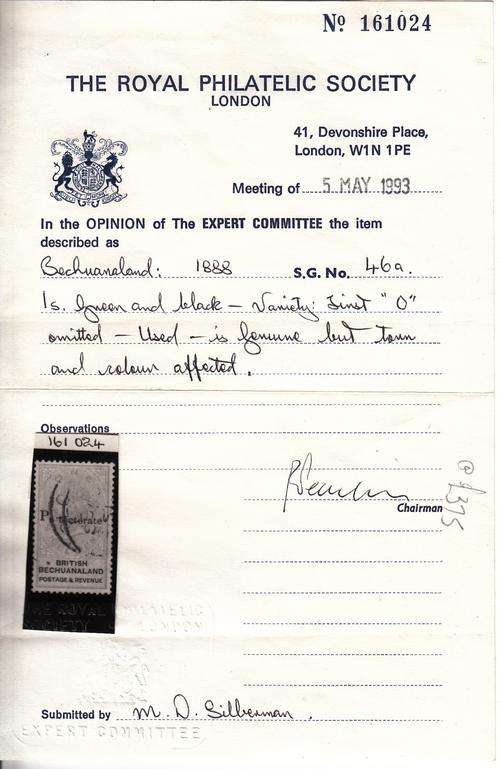 No 161024
THE ROYAL PHILATELIC SOCIETY
LONDON
41, Devonshire Place,
London, W1N 1PE
Meeting of 5 MAY 1993
In the OPINION of The EXPERT COMMITTEE the item
described as
Bechuanaland: 1888 S.G. No. 46a.
1s. Green and black – Variety: First "O"
omitted – Used – is genuine but torn
and colour affected.
Observations
161 024
P tectorate
BRITISH
BECHUANALAND
POSTAGE & REVENUE
Chairman
@ £375
THE ROYAL PHILATELIC
SOCIETY LONDON
Submitted by M. D. Silberman.
EXPERT COMMITTEE